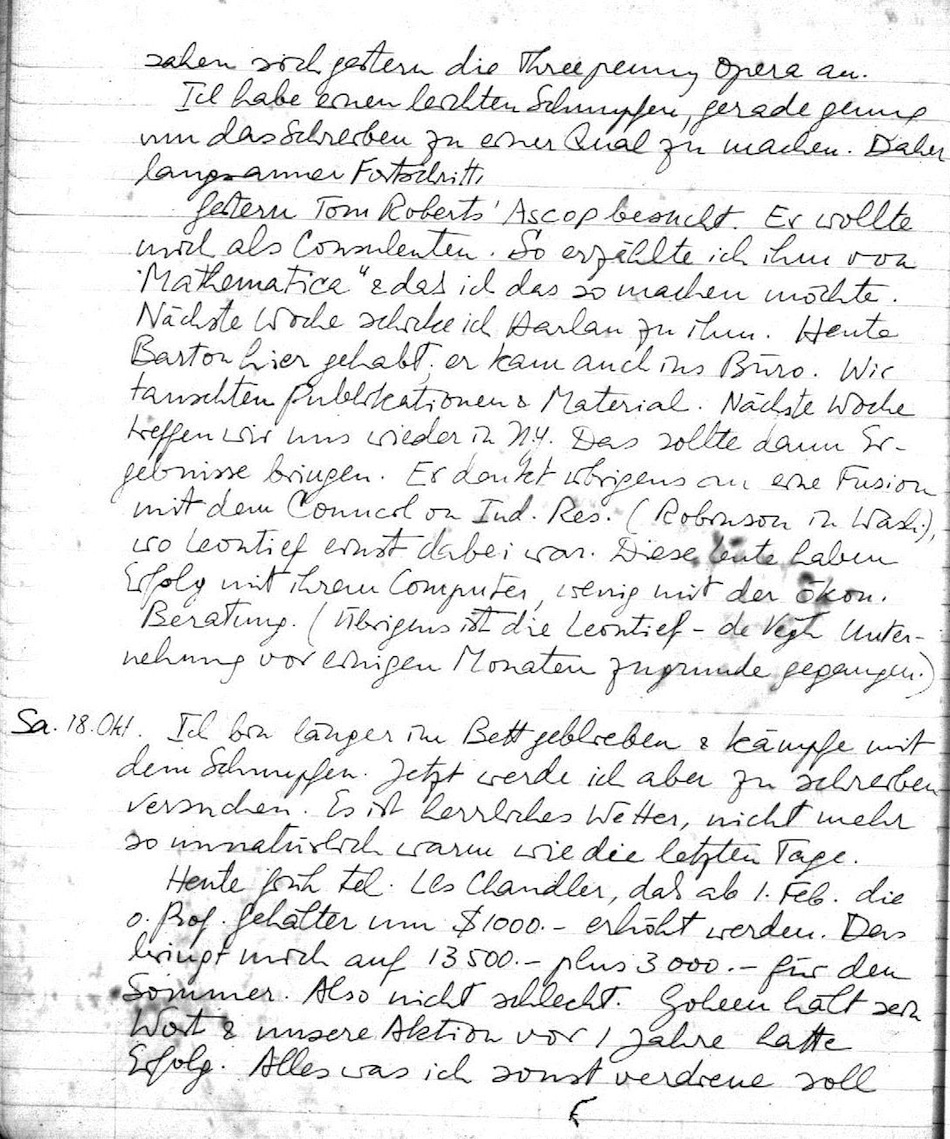 sahen sich gestern die Threepenny Opera an.
Ich habe einen leichten Schnupfen, gerade genug
um das Schreiben zu einer Qual zu machen. Daher
langsamer Fortschritt.
Gestern Tom Roberts' Ascop besucht. Er wollte
mich als Consulenten. So erzählte ich ihm von
"Mathematica" & daß ich das so machen möchte.
Nächste Woche schicke ich Harlan zu ihm. Heute
Barton hier gehabt, er kam auch ins Büro. Wir
tauschten Publikationen & Material. Nächste Woche
treffen wir uns wieder in N.Y. Das sollte dann Er-
gebnisse bringen. Er denkt übrigens an eine Fusion
mit dem Council on Ind. Res. (Robinson in Wash.),
wo Leontief einst dabei war. Diese Leute haben
Erfolg mit ihrem Computer, wenig mit der ökon.
Beratung. (Übrigens ist die Leontief - de Vegh Unter-
nehmung vor einigen Monaten zugrunde gegangen.)
Sa. 18. Okt. Ich bin länger im Bett geblieben & kämpfe mit
dem Schnupfen. Jetzt werde ich aber zu schreiben
versuchen. Es ist herrliches Wetter, nicht mehr
so unnatürlich warm wie die letzten Tage.
Heute früh tel. Les Chandler, daß ab 1. Feb. die
o. Prof. Gehälter um $1000.- erhöht werden. Das
bringt mich auf 13500.- plus 3000.- für den
Sommer. Also nicht schlecht. Goheen hält sein
Wort & unsere Aktion vor 1 Jahre hatte
Erfolg. Alles was ich sonst verdiene soll